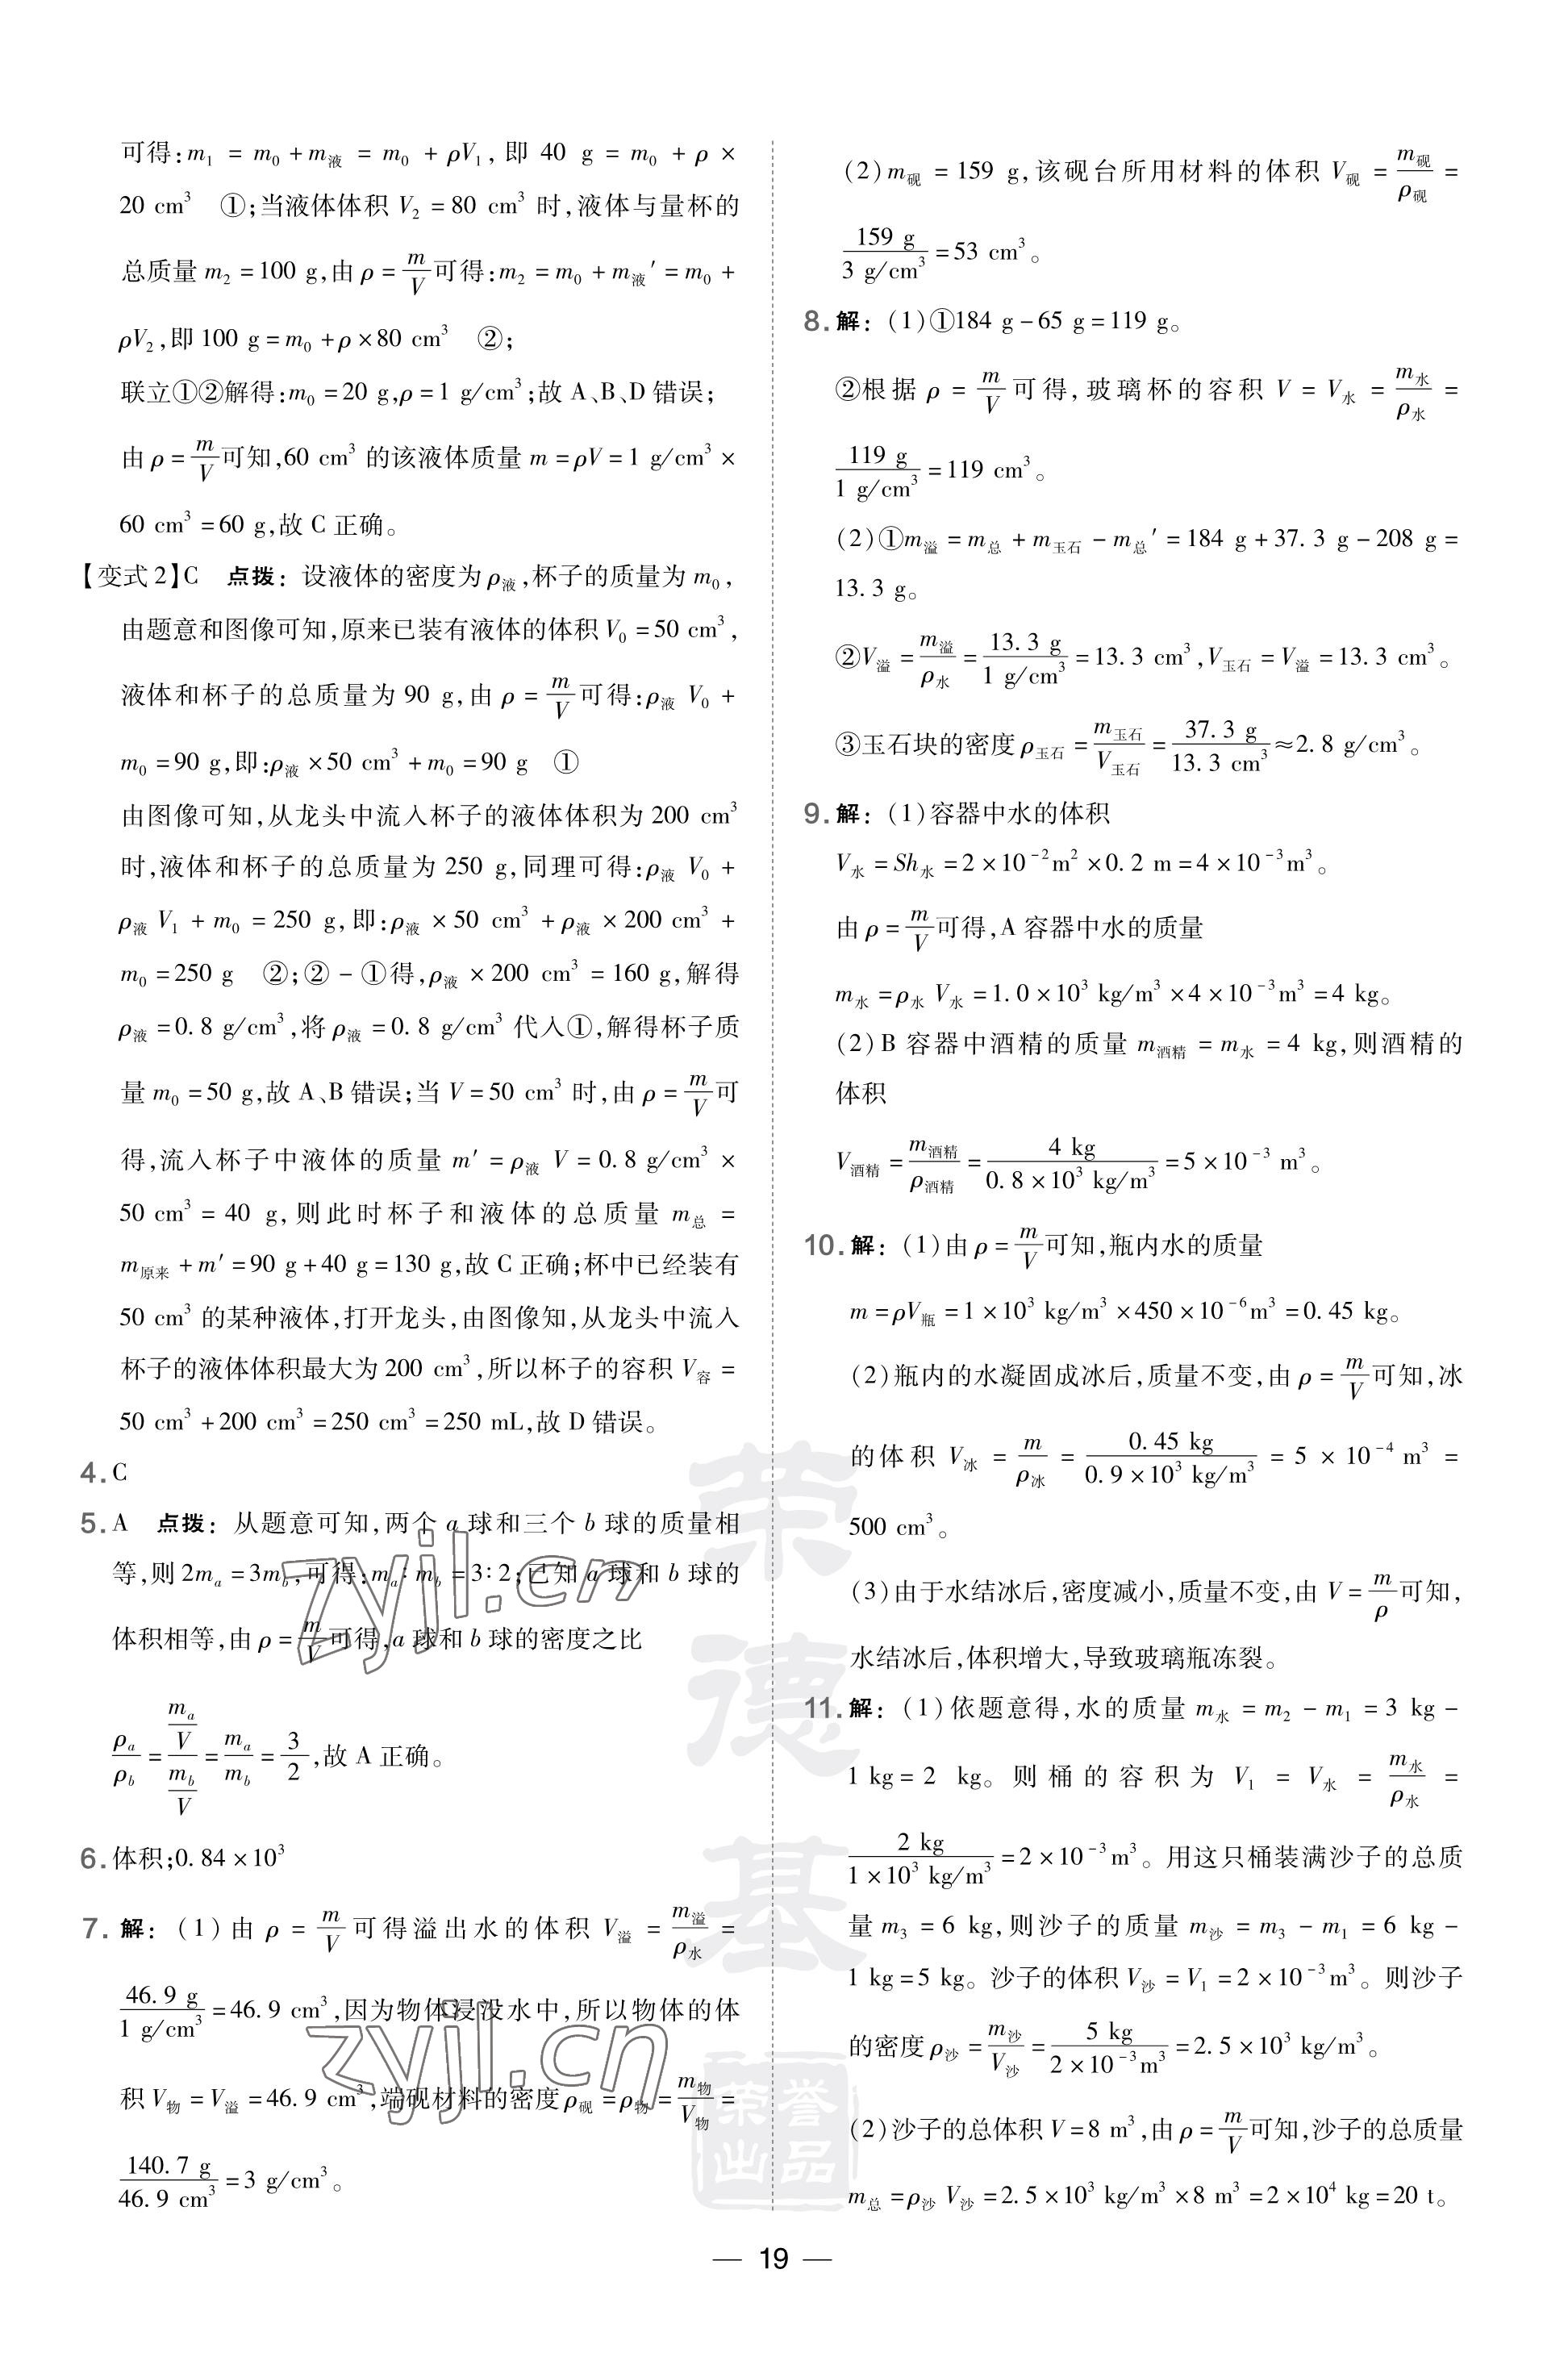 可得:m₁ = m₀ + m液 = m₀ + ρV₁, 即 40 g = m₀ + ρ ×
20 cm³ ①;当液体体积 V₂ = 80 cm³ 时,液体与量杯的
总质量 m₂ = 100 g,由 ρ = m/V 可得:m₂ = m₀ + m液′ = m₀ +
ρV₂,即 100 g = m₀ + ρ × 80 cm³ ②;
联立①②解得:m₀ = 20 g,ρ = 1 g/cm³;故 A、B、D 错误;
由 ρ = m/V 可知,60 cm³ 的该液体质量 m = ρV = 1 g/cm³ ×
60 cm³ = 60 g,故 C 正确。
【变式 2】C 点拨: 设液体的密度为 ρ液,杯子的质量为 m₀,
由题意和图像可知,原来已装有液体的体积 V₀ = 50 cm³,
液体和杯子的总质量为 90 g,由 ρ = m/V 可得:ρ液 V₀ +
m₀ = 90 g,即:ρ液 × 50 cm³ + m₀ = 90 g ①
由图像可知,从龙头中流入杯子的液体体积为 200 cm³
时,液体和杯子的总质量为 250 g,同理可得:ρ液 V₀ +
ρ液 V₁ + m₀ = 250 g,即:ρ液 × 50 cm³ + ρ液 × 200 cm³ +
m₀ = 250 g ②;② - ①得,ρ液 × 200 cm³ = 160 g,解得
ρ液 = 0.8 g/cm³,将 ρ液 = 0.8 g/cm³ 代入①,解得杯子质
量 m₀ = 50 g,故 A、B 错误;当 V = 50 cm³ 时,由 ρ = m/V 可
得,流入杯子中液体的质量 m′ = ρ液 V = 0.8 g/cm³ ×
50 cm³ = 40 g,则此时杯子和液体的总质量 m总 =
m原来 + m′ = 90 g + 40 g = 130 g,故 C 正确;杯中已经装有
50 cm³ 的某种液体,打开龙头,由图像知,从龙头中流入
杯子的液体体积最大为 200 cm³,所以杯子的容积 V容 =
50 cm³ + 200 cm³ = 250 cm³ = 250 mL,故 D 错误。
4. C
5. A 点拨: 从题意可知,两个 a 球和三个 b 球的质量相
等,则 2mₐ = 3m_b,可得:mₐ∶m_b = 3∶2;已知 a 球和 b 球的
体积相等,由 ρ = m/V 可得,a 球和 b 球的密度之比
ρₐ/ρ_b = (mₐ/V)/(m_b/V) = mₐ/m_b = 3/2,故 A 正确。
6. 体积;0.84 × 10³
7. 解: (1)由 ρ = m/V 可得溢出水的体积 V溢 = m溢/ρ水 =
46.9 g/1 g/cm³ = 46.9 cm³,因为物体浸没水中,所以物体的体
积 V物 = V溢 = 46.9 cm³,端砚材料的密度 ρ砚 = ρ物 = m物/V物 =
140.7 g/46.9 cm³ = 3 g/cm³。
(2) m砚 = 159 g,该砚台所用材料的体积 V砚 = m砚/ρ砚 =
159 g/3 g/cm³ = 53 cm³。
8. 解: (1)①184 g - 65 g = 119 g。
②根据 ρ = m/V 可得,玻璃杯的容积 V = V水 = m水/ρ水 =
119 g/1 g/cm³ = 119 cm³。
(2)①m溢 = m总 + m玉石 - m总′ = 184 g + 37.3 g - 208 g =
13.3 g。
②V溢 = m溢/ρ水 = 13.3 g/1 g/cm³ = 13.3 cm³,V玉石 = V溢 = 13.3 cm³。
③玉石块的密度 ρ玉石 = m玉石/V玉石 = 37.3 g/13.3 cm³ ≈ 2.8 g/cm³。
9. 解: (1)容器中水的体积
V水 = Sh水 = 2 × 10⁻² m² × 0.2 m = 4 × 10⁻³ m³。
由 ρ = m/V 可得,A 容器中水的质量
m水 = ρ水 V水 = 1.0 × 10³ kg/m³ × 4 × 10⁻³ m³ = 4 kg。
(2)B 容器中酒精的质量 m酒精 = m水 = 4 kg,则酒精的
体积
V酒精 = m酒精/ρ酒精 = 4 kg/0.8 × 10³ kg/m³ = 5 × 10⁻³ m³。
10. 解: (1)由 ρ = m/V 可知,瓶内水的质量
m = ρV瓶 = 1 × 10³ kg/m³ × 450 × 10⁻⁶ m³ = 0.45 kg。
(2)瓶内的水凝固成冰后,质量不变,由 ρ = m/V 可知,冰
的体积 V冰 = m/ρ冰 = 0.45 kg/0.9 × 10³ kg/m³ = 5 × 10⁻⁴ m³ =
500 cm³。
(3)由于水结冰后,密度减小,质量不变,由 V = m/ρ 可知,
水结冰后,体积增大,导致玻璃瓶冻裂。
11. 解: (1)依题意得,水的质量 m水 = m₂ - m₁ = 3 kg -
1 kg = 2 kg。则桶的容积为 V₁ = V水 = m水/ρ水 =
2 kg/1 × 10³ kg/m³ = 2 × 10⁻³ m³。用这只桶装满沙子的总质
量 m₃ = 6 kg,则沙子的质量 m沙 = m₃ - m₁ = 6 kg -
1 kg = 5 kg。沙子的体积 V沙 = V₁ = 2 × 10⁻³ m³。则沙子
的密度 ρ沙 = m沙/V沙 = 5 kg/2 × 10⁻³ m³ = 2.5 × 10³ kg/m³。
(2)沙子的总体积 V = 8 m³,由 ρ = m/V 可知,沙子的总质量
m总 = ρ沙 V沙 = 2.5 × 10³ kg/m³ × 8 m³ = 2 × 10⁴ kg = 20 t。
— 19 —
荣德基
荣誉出品
zyjl.cn
zyjl.cn